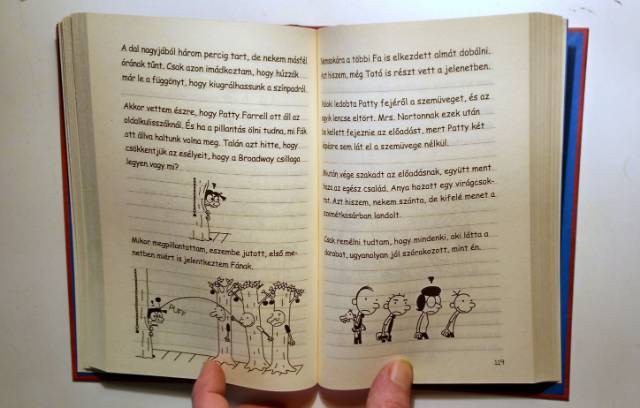 A dal nagyjából három percig tart, de nekem másfél
órának tűnt. Csak azon imádkoztam, hogy húzzák
már le a függönyt, hogy kiugrálhassunk a színpadról.
Akkor vettem észre, hogy Patty Farrell ott áll az
oldalkulisszáknál. És ha a pillantás ölni tudna, mi Fák
ott állva haltunk volna meg. Talán azt hitte, hogy
csökkentjük az esélyeit, hogy a Broadway csillaga
legyen, vagy mi?
Mikor megpillantottam, eszembe jutott, első me-
netben miért is jelentkeztem Fának.
PUFF
többi Fa is elkezdett almát dobálni.
Azt hiszem, még Totó is részt vett a jelenetben.
ledobta Patty fejéről a szemüveget, és az
egyik lencse eltört. Mrs. Nortonnak ezek után
be kellett fejeznie az előadást, mert Patty két
lépésre sem lát el a szemüvege nélkül.
Miután vége szakadt az előadásnak, együtt ment
haza az egész család. Anya hozott egy virágcsok-
rot. Azt hiszem, nekem szánta, de kifelé menet a
szemétkosárban landolt.
Csak remélni tudtam, hogy mindenki, aki látta a
darabot, ugyanolyan jól szórakozott, mint én.
119